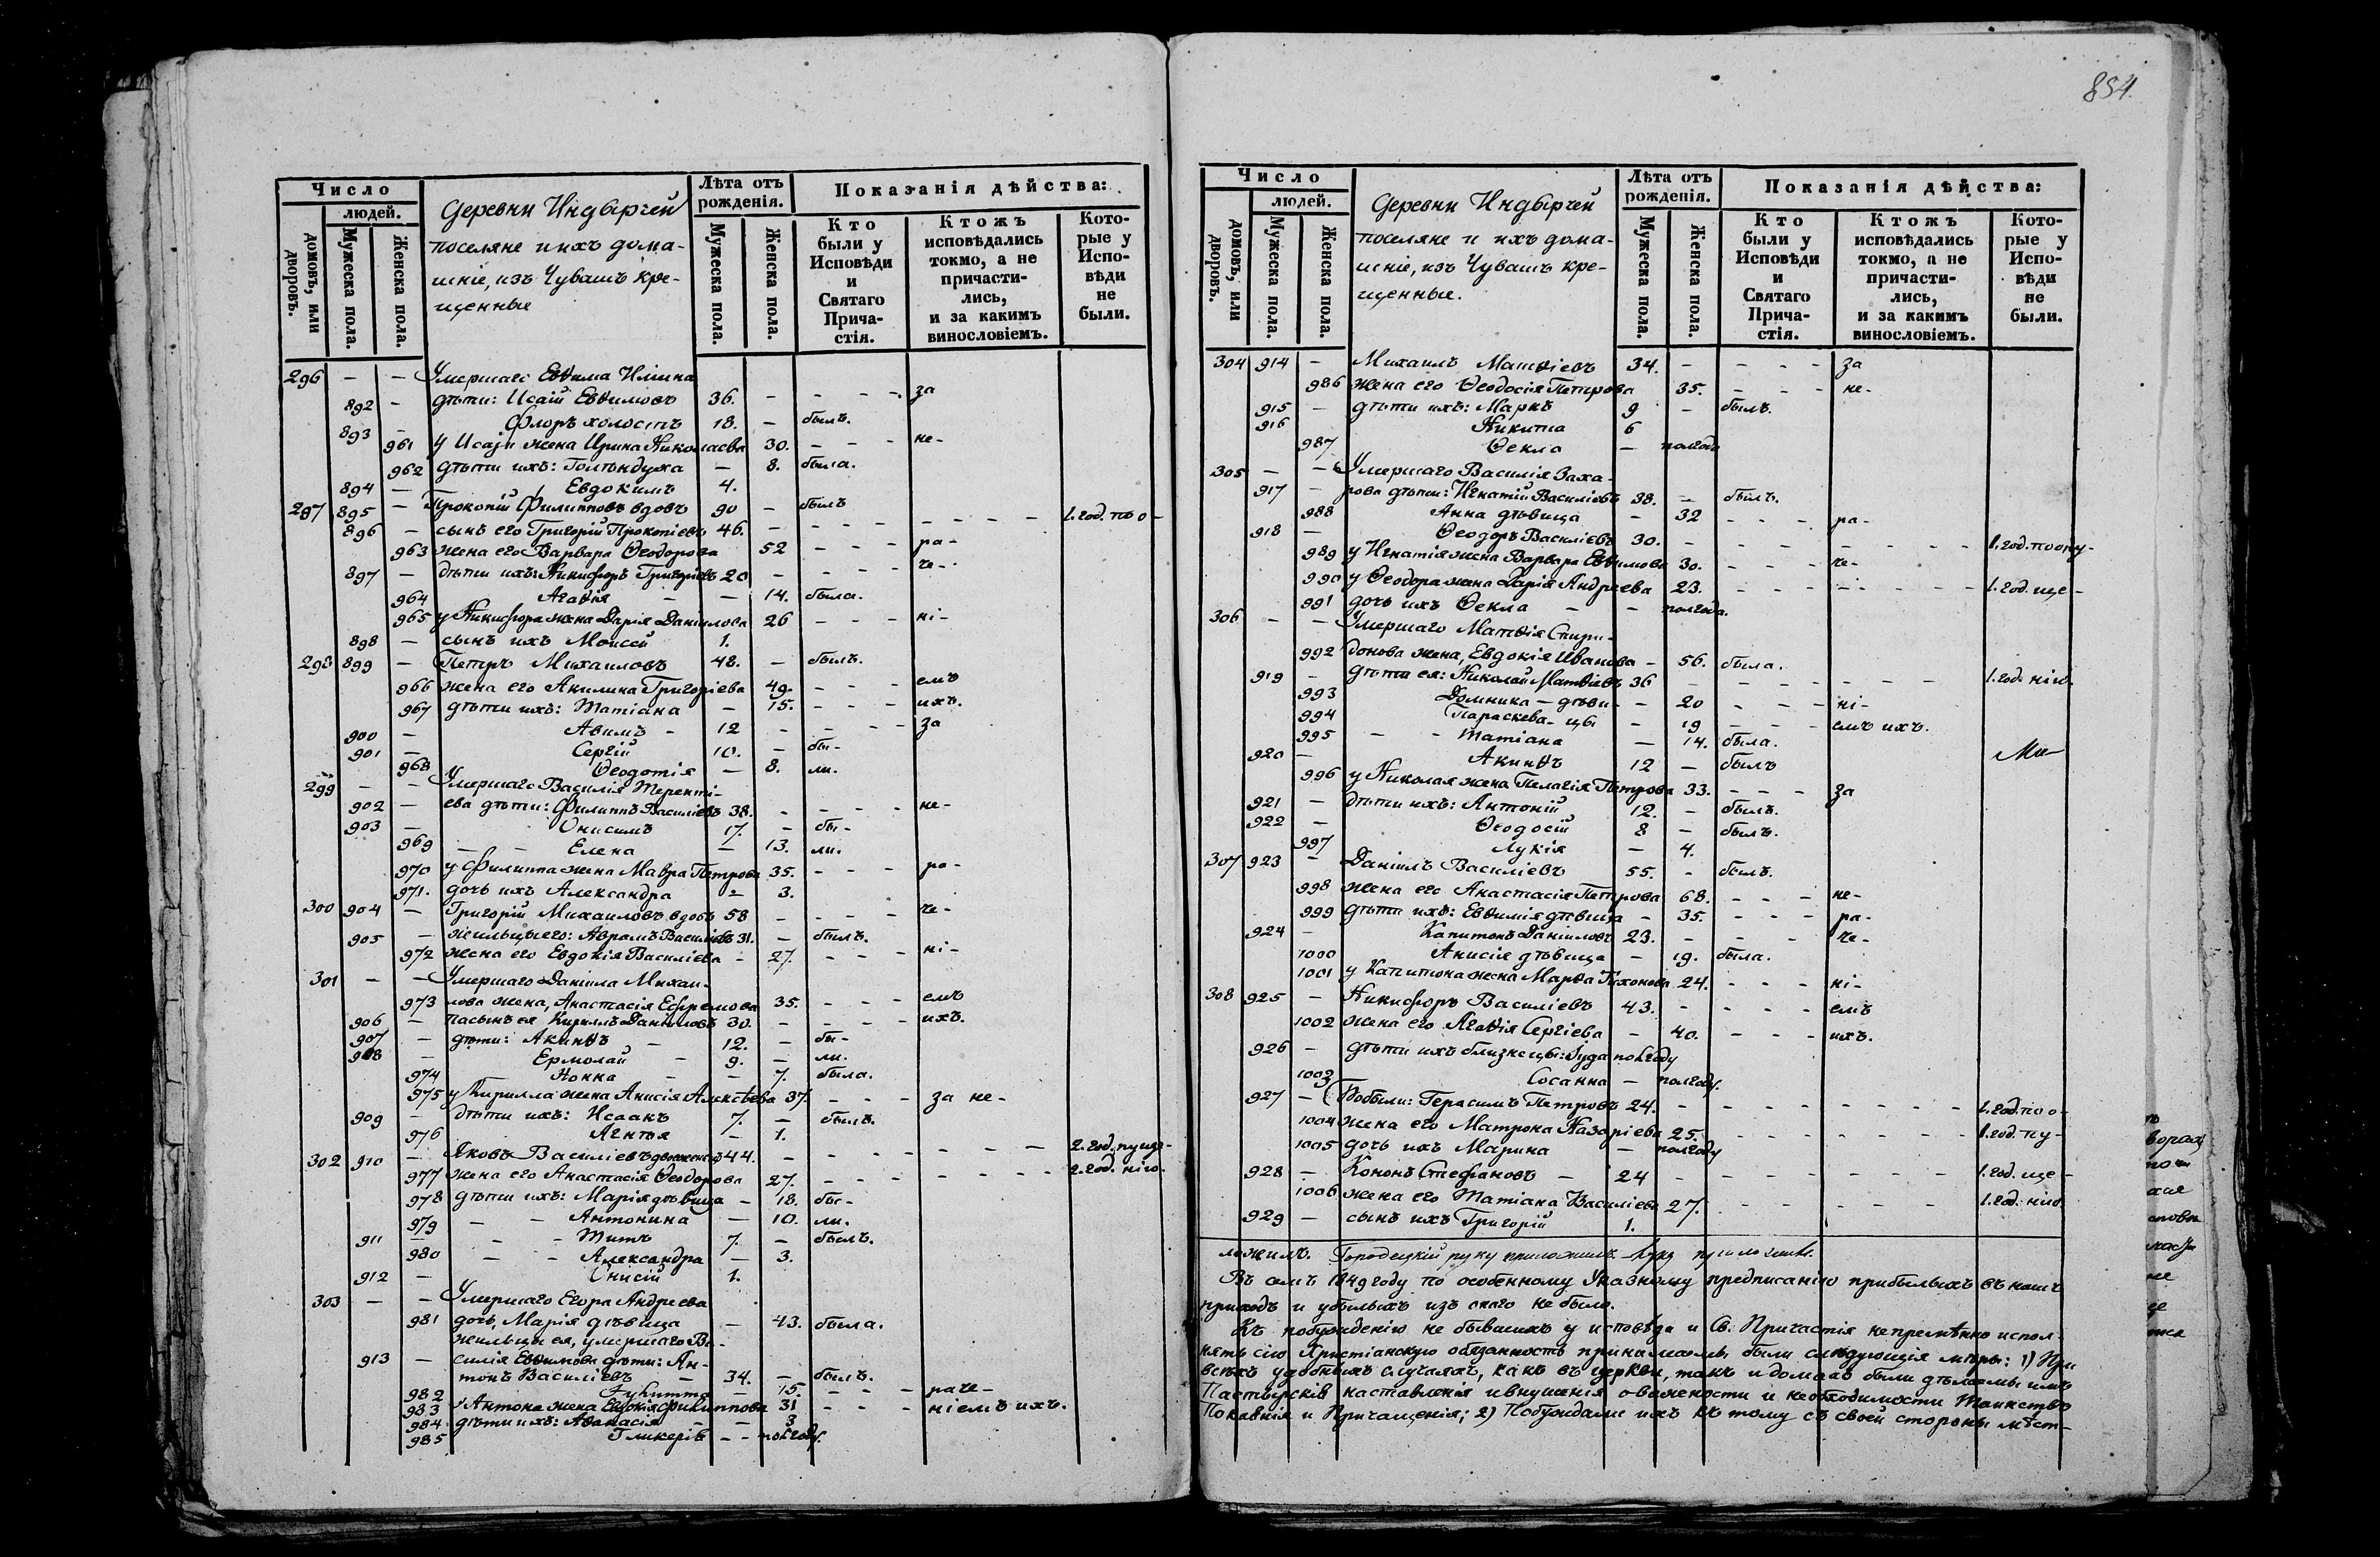 854.
Число
людей.
домовъ, или дворовъ.
Мужеска пола.
Женска пола.
Деревни Индырчей
поселяне и ихъ дома-
шніе, изъ Чувашъ кре-
щенные
Лѣта отъ рожденія.
Мужеска пола.
Женска пола.
Показанія дѣйства:
Кто были у Исповѣди и Святаго Прича-стія.
Ктожъ исповѣдались токмо, а не причасти-лись, и за какимъ винословіемъ.
Кото-рые у Испо-вѣди не были.
296 — — Умершаго Евѳима Ильина
892 — дѣти: Исаій Евѳимовъ 36. — - - - за
893 — Флоръ холостъ 18. — былъ.
961 у Исаіи жена Ирина Николаева 30. - - - не-
962 дѣти ихъ: Голындуха — 8. была.
894 — Евдокимъ 4.
297 895 — Прокопій Филипповъ вдовъ 90 — былъ
896 — сынъ его Григорій Прокопіевъ 46. - - - - - - - 1. год. по о-
963 жена его Варвара Ѳеодорова 52 - - - ра-
897 — дѣти ихъ: Никифоръ Григоріевъ 20 — - - - че-
964 Агаѳія — 14. была.
965 у Никифора жена Дарія Даніилова 26 - - - ні-
898 — сынъ ихъ Моисей 1.
298 899 — Петръ Михаиловъ 48. — былъ.
966 жена его Акилина Григоріева 49. - - - емъ
967 дѣти ихъ: Татіана — 15. - - - ихъ.
900 — Авимъ - 12 - - - - за
901 — Сергій 10. — бы-
968 Ѳеодотія — 8. ли.
299 — — Умершаго Василія Теренті-
902 — ева дѣти: Филиппъ Василіевъ 38. - - - - не-
903 — Онисимъ 17. — бы-
969 — — Елена — 13. ли.
970 у Филиппа жена Мавра Петрова 35. - - - ра-
971. дочь ихъ Александра — 3.
300 904 — Григорій Михаиловъ вдовъ 58 - - - - че-
905 — жильцы его: Аврамъ Василіевъ 31. — былъ.
972 жена его Евдокія Василіева - 27. - - - ні-
301 — — Умершаго Даніила Михаи-
973 лова жена, Анастасія Ефремова 35. - - - емъ
906 — пасынъ ея Кириллъ Даніиловъ 30. - - - - ихъ.
907 — дѣти: Акинѳъ — 12. — бы-
908 — Ермолай - 9. — ли.
974 Нонна — — 7. была.
975 у Кирилла жена Анисія Алексѣева 37. - - - за не-
909 — дѣти ихъ: Исаакъ 7. — былъ.
976 Агнія — 1.
302 910 — Яковъ Василіевъ двоеженецъ 44. - - - - - - - 2. год. пущ-
977 жена его Анастасія Ѳеодорова 27. - - - - - - 2. год. нію.
978 дѣти ихъ: Марія дѣвица — 18. бы-
979 — — Антонина — 10. ли.
911 — - - Титъ 7. — былъ.
980 — - Александра — 3.
912 — Онисій 1.
303 — — Умершаго Егора Андреева
981 дочь, Марія дѣвица — 43. была.
жильцы ея, умершаго Ва-
913 — силія Евѳимова дѣти: Ан-
тонъ Василіевъ — 34. — былъ.
982 Іулитта — 15. - - - раче-
983 у Антона жена Евдокія Филиппова 31 - - - ніемъ ихъ.
984 дѣти ихъ: Аѳанасія — — 3
985 Гликерія - - полгоду.
Число
людей.
домовъ, или дворовъ.
Мужеска пола.
Женска пола.
Деревни Индырчей
поселяне и ихъ дома-
шніе, изъ Чувашъ кре-
щенные.
Лѣта отъ рожденія.
Мужеска пола.
Женска пола.
Показанія дѣйства:
Кто были у Исповѣди и Святаго Прича-стія.
Ктожъ исповѣдались токмо, а не причасти-лись, и за какимъ винословіемъ.
Кото-рые у Испо-вѣди не были.
304 914 — Михаилъ Матѳіевъ 34. - - - - за
986 жена его Ѳеодосія Петрова 35. - - - не-
915 — дѣти ихъ: Маркъ 9 — былъ.
916 Никита 6
987 Ѳекла — полгода
305 — — Умершаго Василія Заха-
917 — рова дѣти: Игнатій Василіевъ 38. — былъ.
988 Анна дѣвица — 32 - - - ра-
918 — Ѳеодоръ Василіевъ 30. - - - - - - - 1. год. по опу-
989 у Игнатія жена Варвара Евѳимова 30. - - - че-
990 у Ѳеодора жена Дарія Андреева 23. - - - - - - 1. год. ще-
991 дочь ихъ Ѳекла — — полгода.
306 — — Умершаго Матѳія Спири-
992 донова жена, Евдокія Иванова — 56. была.
919 — дѣти ея: Николай Матѳіевъ 36 - - - - - - - 1. год. нію.
993 Домника — дѣви- — 20 - - - ні-
994 Параскева - цы — 19 - - - емъ ихъ.
995 - - Татіана — 14. была.
920 — Акинѳъ 12 — былъ
996 у Николая жена Пелагія Петрова 33. - - - за
921 — дѣти ихъ: Антоній 12. — былъ.
922 — Ѳеодосій 8 — былъ.
997 Лукія — 4.
307 923 — Даніилъ Василіевъ 55. - былъ.
998 жена его Анастасія Петрова 68. - - - не-
999 дѣти ихъ: Евѳимія дѣвица — 35. - - - ра-
924 — Капитонъ Даніиловъ 23. - - - че-
1000 Анисія дѣвица — 19. была.
1001 у Капитона жена Марѳа Тихонова 24. - - - ні-
308 925 — Никифоръ Василіевъ 43. - - - - емъ
1002 жена его Агаѳія Сергіева — 40. - - - ихъ.
926 — дѣти ихъ близнецы: Іуда полгоду
1003 Сосанна — полгоду.
927 — Бобыли: Герасимъ Петровъ 24. - - - - - - - 1. год. по о-
1004 жена его Матрона Назаріева 25. - - - - - - 1. год. пу-
1005 дочь ихъ Марина — полгоду
928 — Кононъ Стефановъ — 24 - - - - - - - 1. год. ще-
1006 жена его Татіана Василіева 27. - - - - - - 1. год. нію.
929 — сынъ ихъ Григорій 1.
ложилъ. Городецкій руку приложилъ
Въ семъ 1849 году по особенному Указному предписанію прибылыхъ въ нашъ
приходъ и убылыхъ изъ онаго не было.
Къ побужденію не бывшихъ у исповѣди и Св. Причастія непремѣнно испол-
нять сію Христіанскую обязанность принимаемы были слѣдующія мѣры: 1) При
всѣхъ удобныхъ случаяхъ, какъ въ церкви, такъ и домахъ были дѣлаемы имъ
Пастырскія наставленія и внушенія о важности и необходимости Таинствъ
Покаянія и Причащенія; 2) Побуждали ихъ къ тому съ своей стороны мѣст-